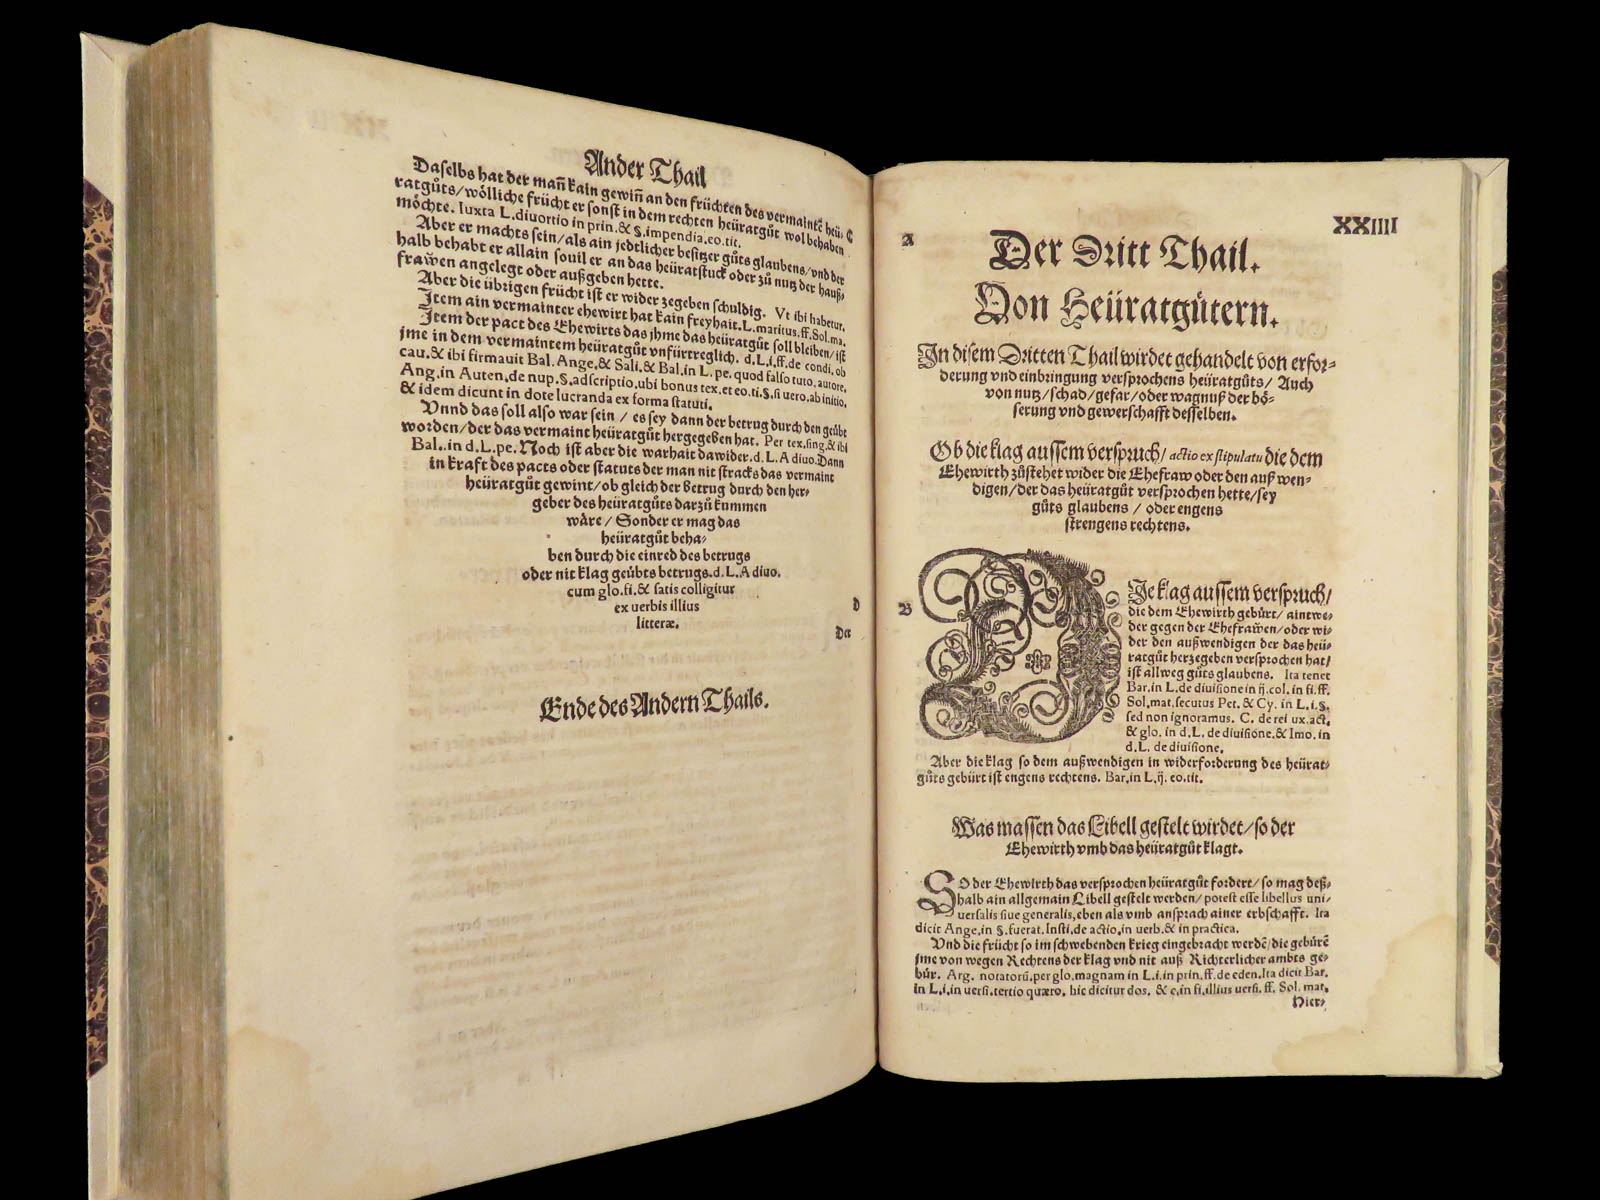 Ander Thail
Daselbs hat der mañ kain gewiñ an den früchten des vermaintē heü-
ratgůts/wölliche frücht er sonst in dem rechten heüratgůt wol behaben
möchte. Iuxta L.diuortio in prin.& §.impendia.eo.tit.
C
Aber er machts sein/als ain jedtlicher besitzer gůts glaubens/vnd der
halb behabt er allain souil er an das heüratstuck oder zů nutz der hauß-
frawen angelegt oder außgeben hette.
Aber die übrigen frücht ist er wider zegeben schuldig. Vt ibi habetur.
Item ain vermainter ehewirt hat kain freyhait.L.maritus.ff.Sol.ma.
Item der pact des Ehewirts das jhme das heüratgůt soll bleiben/ist
jme in dem vermaintem heüratgůt vnfürtreglich. d.L.i.ff.de condi.ob
cau.& ibi firmauit Bal.Ange.& Sali.& Bal.in L.pe.quod falso tuto.autore,
Ang.in Auten.de nup.§.adscriptio.ubi bonus tex.et eo.ti.§.si uero.ab initio,
& idem dicunt in dote lucranda ex forma statuti.
Vnnd das soll also war sein / es sey dann der betrug durch den geübt
worden/der das vermaint heüratgůt hergegeben hat. Per tex.sing.& ibi
Bal..in d.L.pe.Noch ist aber die warhait dawider.d.L.A diuo.Dann
in kraft des pacts oder statuts der man nit stracks das vermaint
heüratgůt gewint/ob gleich der betrug durch den her-
geber des heüratgůts darzů kummen
wäre / Sonder er mag das
heüratgůt beha-
ben durch die einred des betrugs
oder nit klag geübts betrugs.d.L.A diuo.
cum glo.fi.& satis colligitur
ex uerbis illius
litteræ.
D
Ende des Andern Thails.
XXIIII
A
Der Dritt Thail.
Von Heüratgůtern.
In disem Dritten Thail wirdet gehandelt von erfor-
derung vnd einbringung versprochens heüratgůts/ Auch
von nutz/schad/gefar/oder wagnuß der bö-
serung vnd gewerschafft desselben.
Ob die klag aussem versprůch/ actio ex stipulatu die dem
Ehewirth zůstehet wider die Ehefraw oder den auß wen-
digen/der das heüratgůt versprochen hette/sey
gůts glaubens / oder engens
strengens rechtens.
B
DJe klag aussem versprůch/
die dem Ehewirth gebürt/ aintwe-
der gegen der Ehefrawen/oder wi-
der den außwendigen der das heü-
ratgůt herzegeben versprochen hat/
ist allweg gůts glaubens. Ita tenet
Bar.in L.de diuisione in ij.col.in fi.ff.
Sol.mat.secutus Pet.& Cy. in L.i.§.
sed non ignoramus. C. de rei ux.act.
& glo. in d.L.de diuisione.& Imo. in
d.L. de diuisione.
Aber die klag so dem außwendigen in widerforderung des heürat-
gůts gebürt ist engens rechtens. Bar.in L.ij. eo.tit.
Was massen das Libell gestelt wirdet/so der
Ehewirth vmb das heüratgůt klagt.
SO der Ehewirth das versprochen heüratgůt fordert/so mag deß-
halb ain allgemain Libell gestelt werden/potest esse libellus uni-
uersalis siue generalis,eben als vmb ansprach ainer erbschafft. Ita
dicit Ange.in §.fuerat.Insti.de actio.in uerb.& in practica.
Vnd die frücht so im schwebenden krieg eingebracht werdē/die gebürē
jme von wegen Rechtens der klag vnd nit auß Richterlicher ambts ge-
bür. Arg. notatorū,per glo.magnam in L.i.in prin.ff.de eden.Ita dicit Bar.
in L.i.in uersi.tertio quæro. hic dicitur dos. & e.in fi.illius uersi. ff. Sol. mat.
Hier-